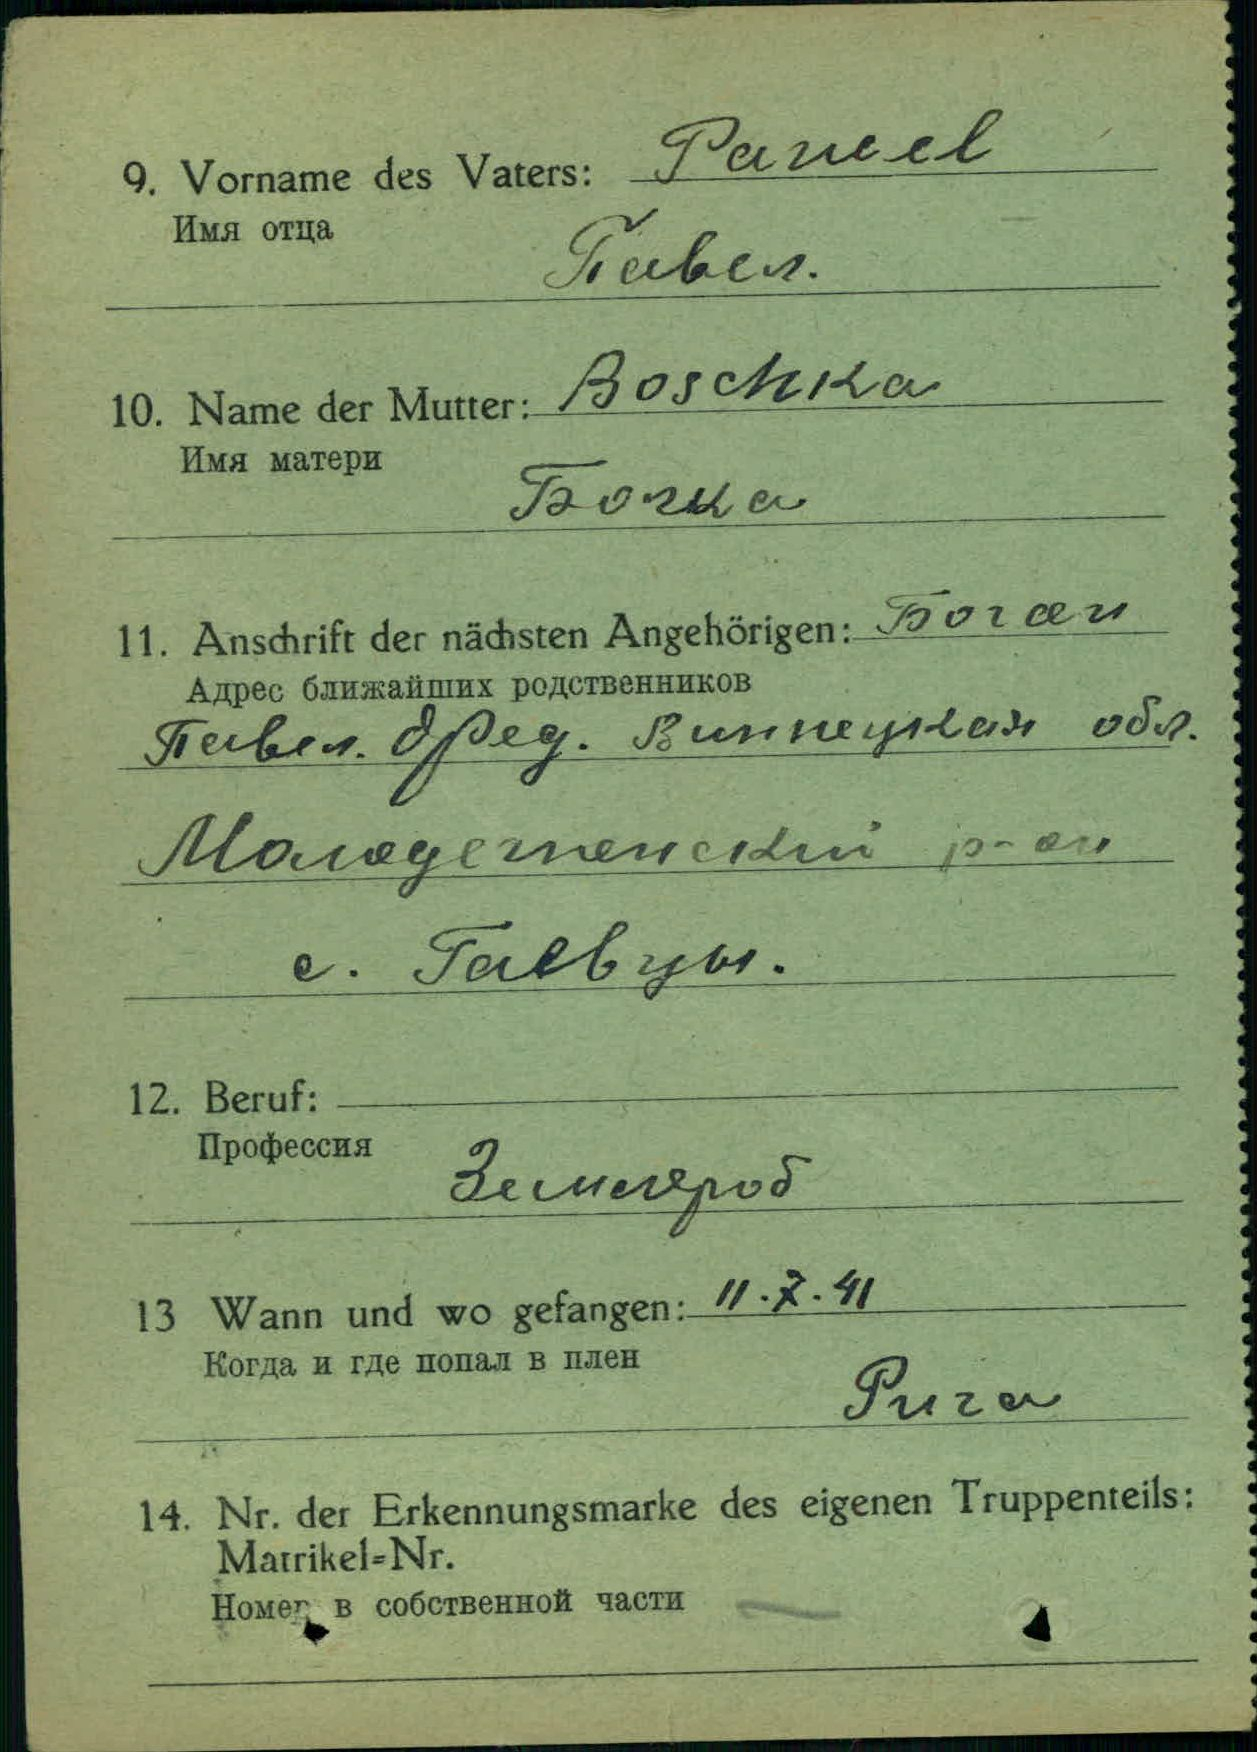 9. Vorname des Vaters: Pawel
Имя отца
Павел.
10. Name der Mutter: Boschka
Имя матери
Бочка
11. Anschrift der nächsten Angehörigen: Боган
Адрес ближайших родственников
Павел. Фед. Виннецкая обл.
р-он
с. Гаевцы.
12. Beruf:
Профессия
Землероб
13 Wann und wo gefangen: 11.7.41
Когда и где попал в плен
Рига
14. Nr. der Erkennungsmarke des eigenen Truppenteils:
Matrikel=Nr.
Номер в собственной части